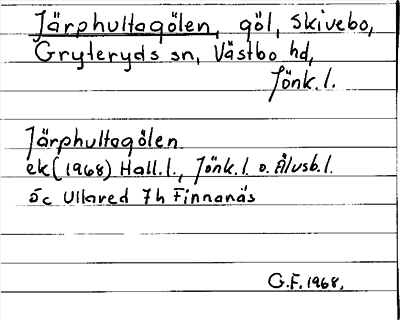 Järphultagölen, göl, Skivebo,
Gryteryds sn, Västbo hd,
Jönk. l.
Järphultagölen
ek (1968) Hall. l., Jönk. l. o. Älvsb. l.
5c Ullared 7h Finnanäs
G.F. 1968.